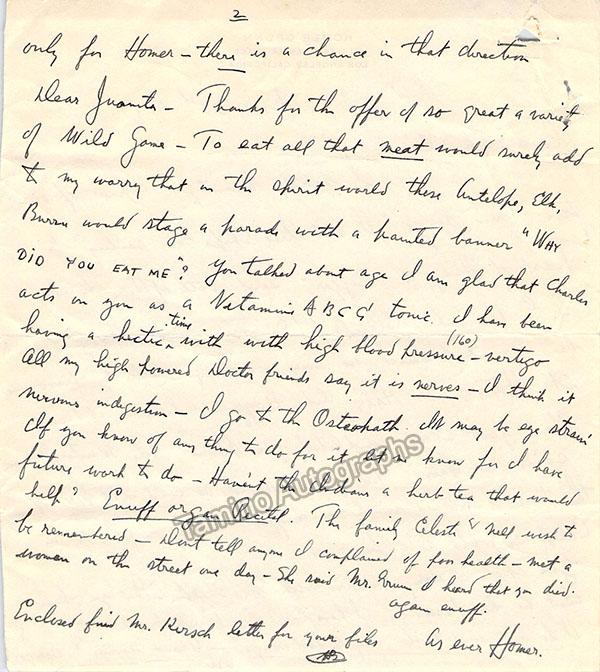 2
only for Homer – there is a chance in that direction
Dear Juanita – Thanks for the offer of so great a variety
of Wild Game – To eat all that meat would surely add
to my worry that in the spirit world these Antelope, Elk,
would stage a parade with a painted banner "WHY
DID YOU EAT ME"? You talked about age I am glad that Charles
acts on you as a Vitamins A B C G tonic. I have been
having a hectic time with with high blood pressure (160) – vertigo
All my high powered Doctor friends say it is nerves – I think it
nervous indigestion – I go to the Osteopath. It may be eye strain
If you know of any thing to do for it let me know for I have
future work to do – Haven't the a herb tea that would
help? Enuff organ Recital. The family Celeste & Nell wish to
be remembered – Don't tell anyone I complained of poor health – met a
woman on the street one day – She said Mr. I heard that you died.
again enuff.
Enclosed find Mr. Korsch letter for your files As ever Homer.
Tamino Autographs